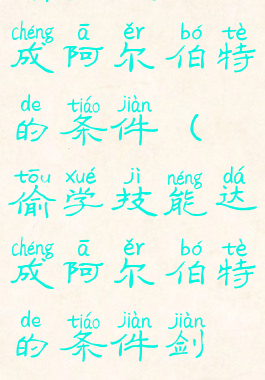 chéng ā ěr bó tè
成阿尔伯特
de tiáo jiàn
的条件（
tōu xué jì néng dá
偷学技能达
chéng ā ěr bó tè
成阿尔伯特
de tiáo jiàn jiàn
的条件剑